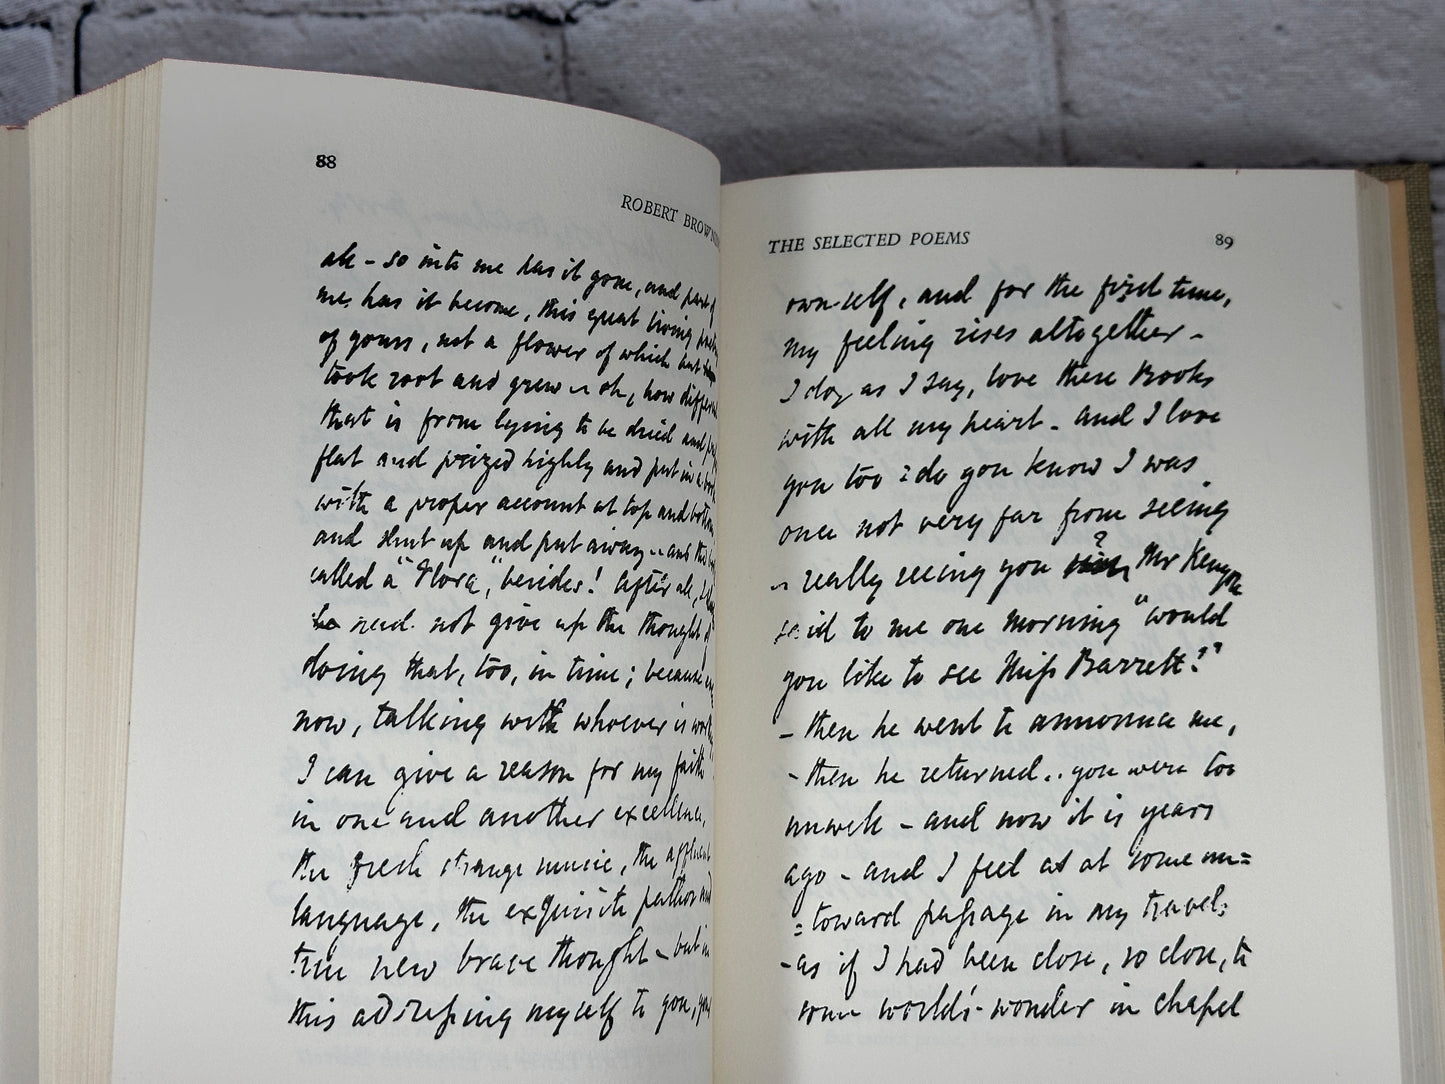 88
ROBERT BROWNING
all – so into me has it gone, and part of
me has it become, this great living poetry
of yours, not a flower of which but
took root and grew – oh, how different
that is from lying to be dried and
flat and prized highly and put in a book
with a proper account at top and bottom,
and shut up and put away .. and the
called a "Flora," besides! After all, I
need not give up the thought of
doing that, too, in time; because even
now, talking with whoever is worthy,
I can give a reason for my faith
in one and another excellence,
the fresh strange music, the affluent
language, the exquisite pathos and
true new brave thought – but in
this addressing myself to you, your
THE SELECTED POEMS
89
own self, and for the first time,
my feeling rises altogether –
I do, as I say, love these Books
with all my heart – and I love
you too : do you know I was
once not very far from seeing
– really seeing you ? Mr Kenyon
said to me one morning "would
you like to see Miss Barrett?"
– then he went to announce me,
– then he returned .. you were too
unwell – and now it is years
ago – and I feel as at some un=
=toward passage in my travels –
– as if I had been close, so close, to
some world's-wonder in chapel